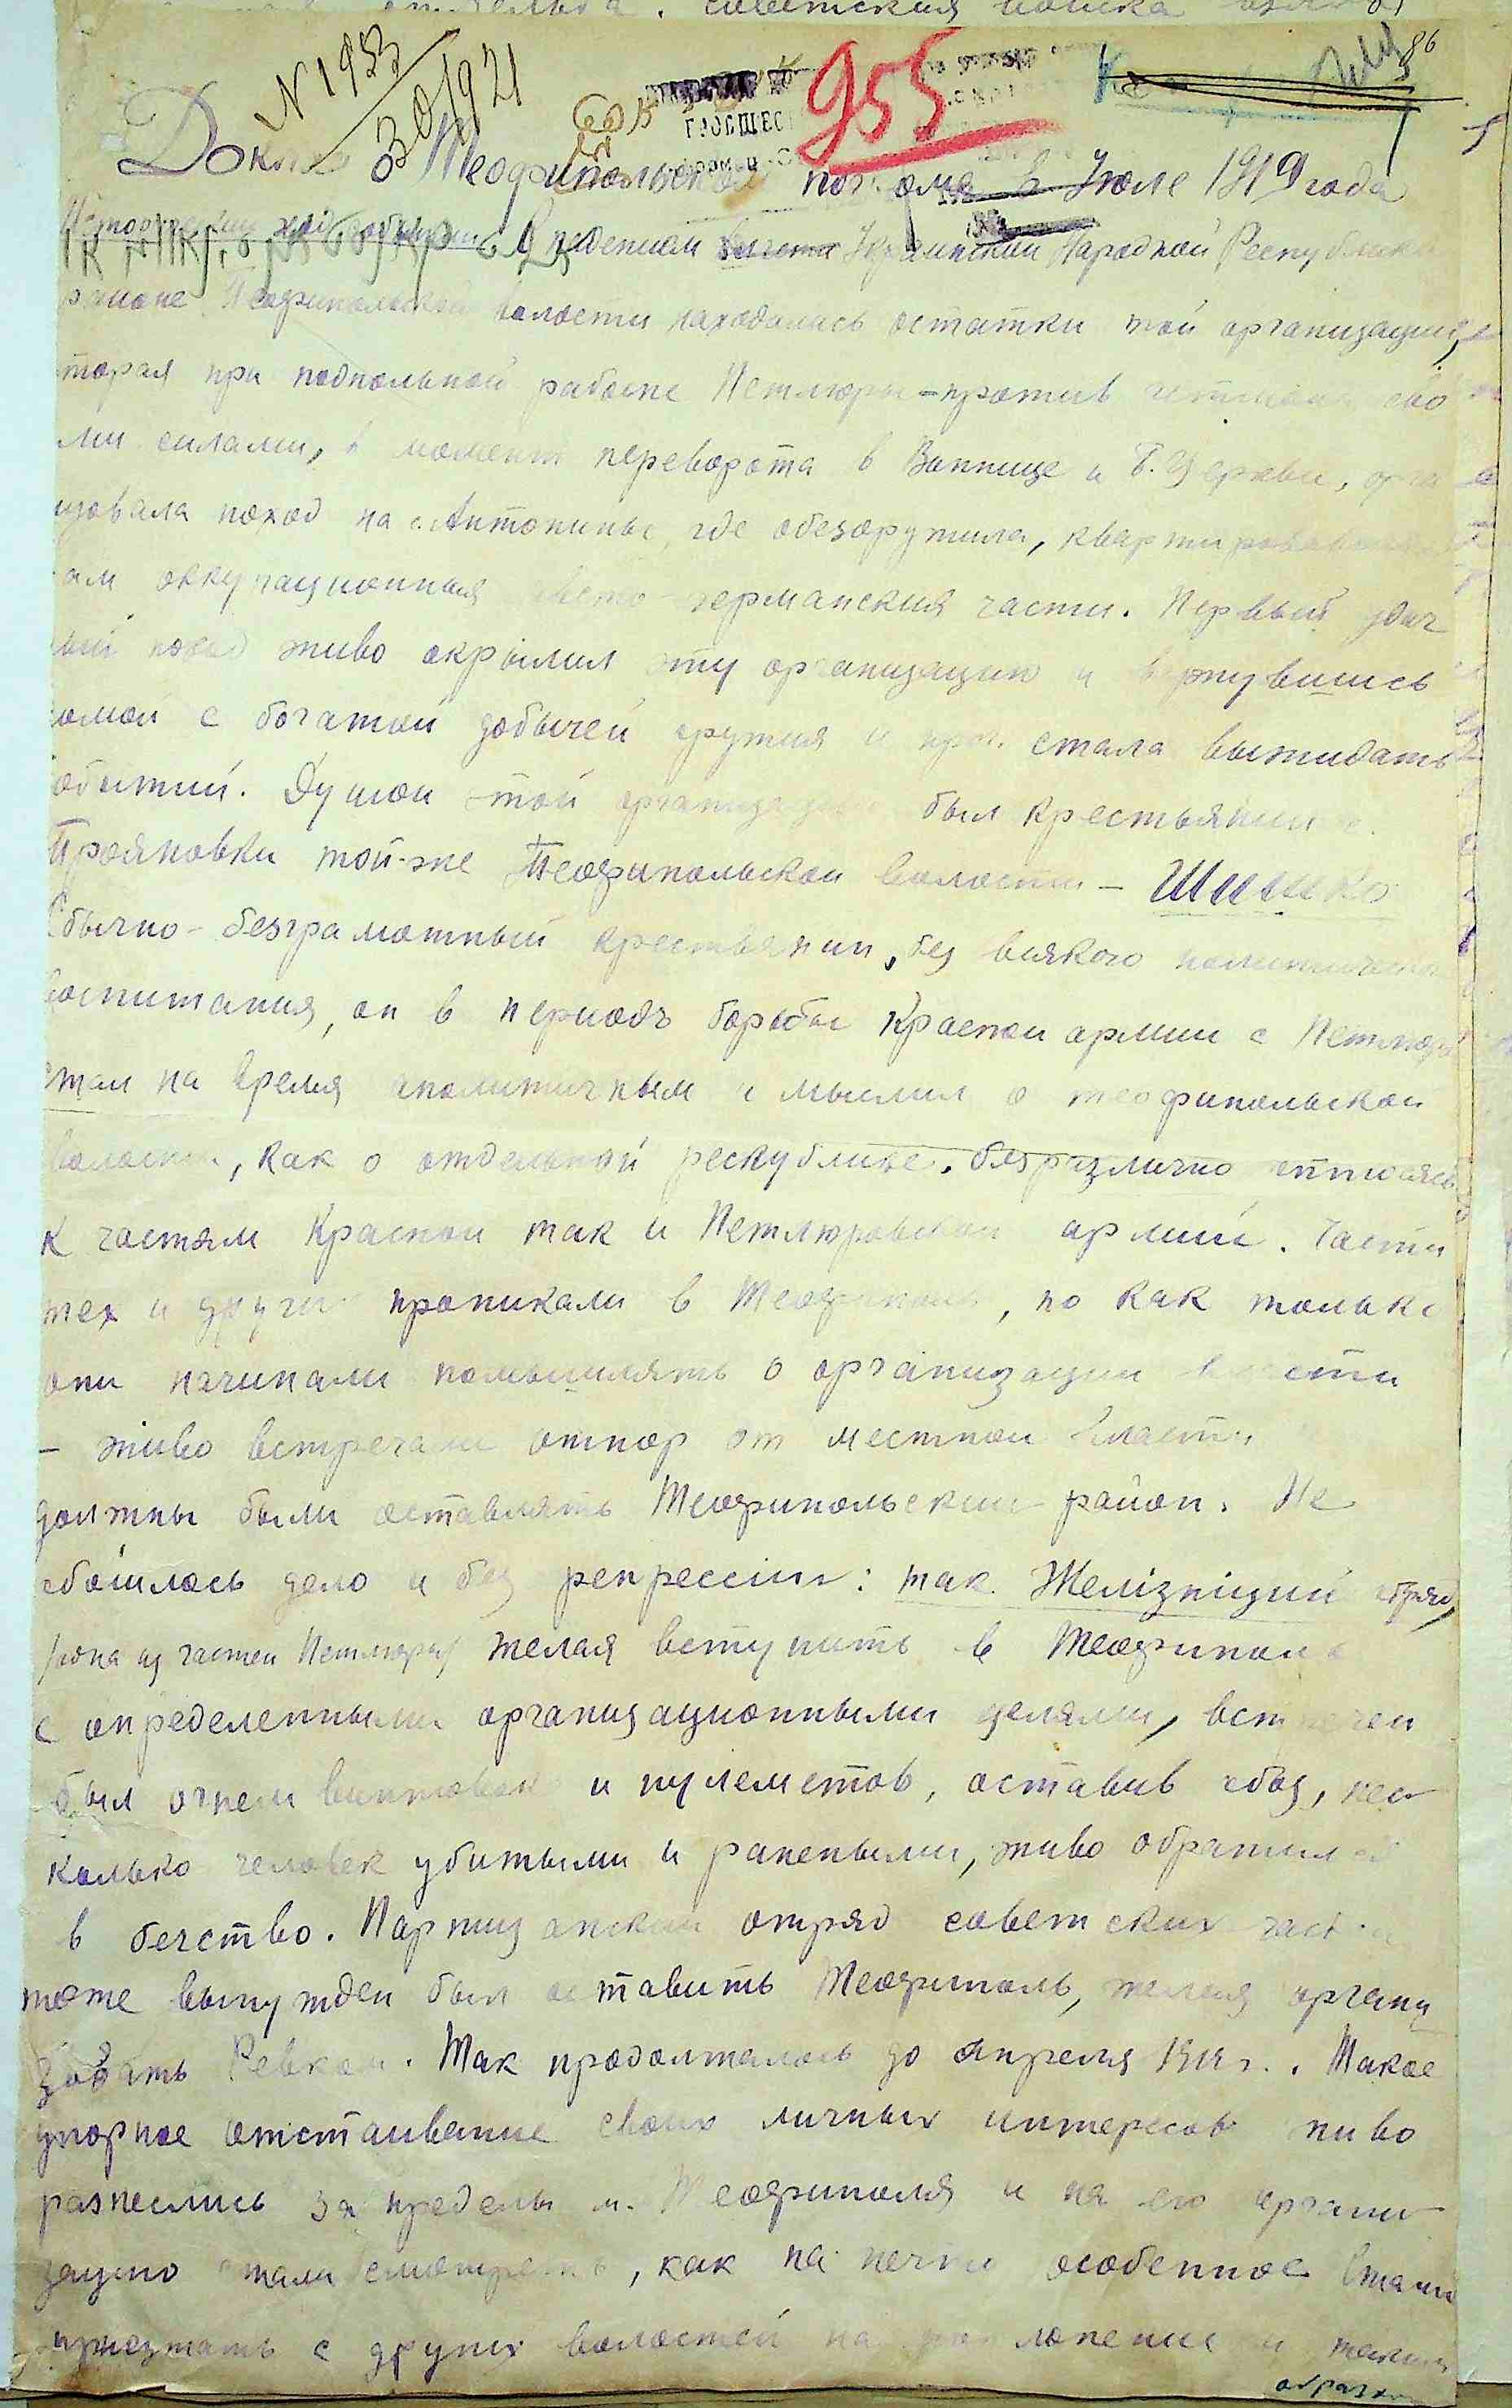 86
N 1953
30/921
955
Доклад о Теофипольском погроме в Июле 1919 года
Исторический ход событий. С падением власти Украинской Народной Республики
районе Теофипольской волости находились остатки той организации,
торая при подпольной работе Петлюры – против гетмана сво
ми силами, в момент переворота в Виннице и Б. Церкви, орга
изовала поход на с. Антонины, где обезоружила, квартировавшия
там оккупационныя австо-германския части. Первый удач
ный поход живо окрылил эту организацию и вернувшись
омой с богатой добычей оружия и проч. стала выжидать
обытий. Душой этой организации был крестьянин с.
Трояновки той-же Теофипольской волости – Шишко
Обычно – безграмотный крестьянин, без всякого политическа
воспитания, он в периодъ борьбы Красной армии с Петлюр
стал на время аполитичным и мыслил о теофипольской
волости, как о отдельной республике, безразлично относясь
к частям Красной так и Петлюровской армии. Части
тех и других проникали в Теофиполь, но как только
они начинали помышлять о организации власти
– живо встречали отпор от местной власти
должны были оставлять Теофипольский район. Не
обошлось дело и без репрессии: так Желізніций отряд,
/одна из частей Петлюры/ желая вступить в Теофиполь
с определенными организационными целями, встречен
был огнем винтовок и пулеметов, оставив обоз, нес
колько человек убитыми и ранеными, живо обратился
в бегство. Партизанский отряд советских частей
тоже вынужден был оставить Теофиполь, желая органи
зовать Ревком. Так продолжалось до апреля 1919 г.. Такое
упорное отстаивание своих личных интересов живо
разнеслись за пределы м. Теофиполя и на его органи
зацию стали смотреть, как на нечто особенное стали
приезжать с других волостей на поклонение и таким
образом